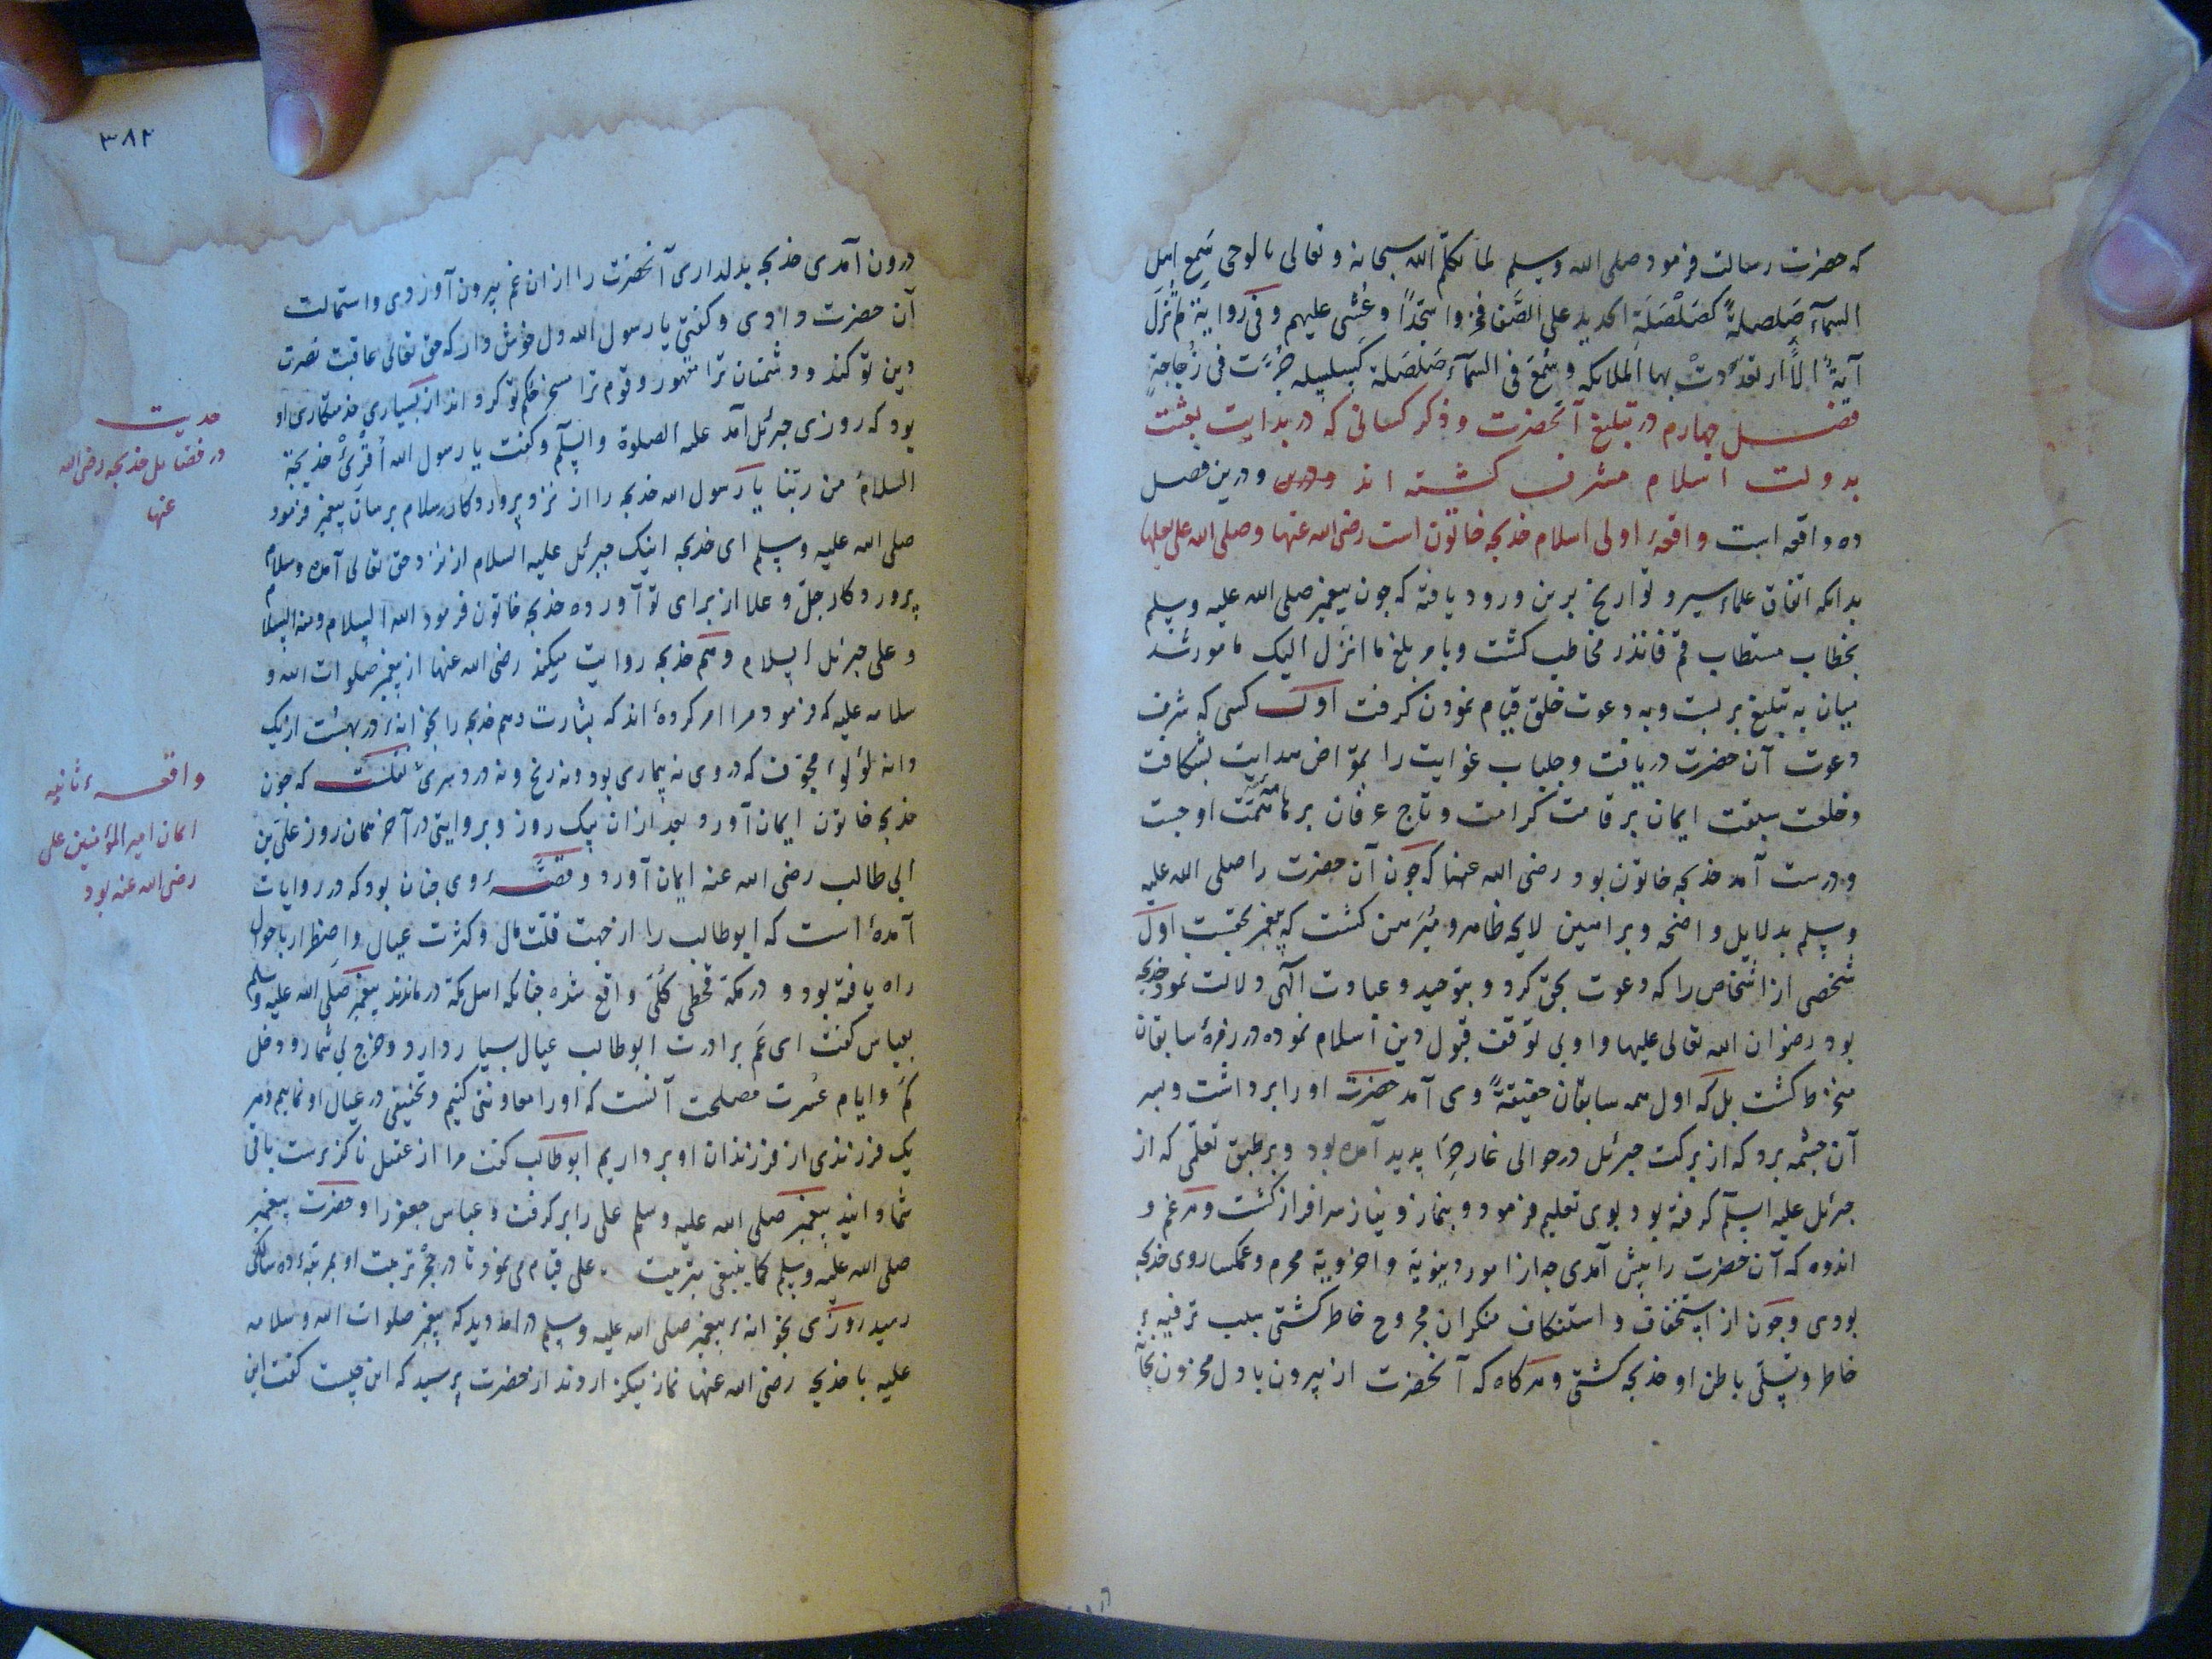 که حضرت رسالت فرمود صلی الله وسلم لما تکلم الله سبحانه وتعالی بالوحی سمع اهل
السمآء صَلصلةً کصَلْصَلَةِ الحدید علی الصَّفا فخروا سُجّداً وغُشی علیهم وفی روایة لم تُنزَل
آیةٌ الّا ارتعَدَتْ بها الملائکه وسُمعَ فی السمآء صَلصَلة کسلسله جُرَّت فی زُجاجةٍ
فصل چهارم در تبلیغ آنحضرت و ذکر کسانی که در بدایت بعثت
بدولت اسلام مشرف کشته اند ودرین فصل
ده واقعه است واقعهٔ اولی اسلام خدیجه خاتون است رضی الله عنها وصلی الله علی بعلها
بدانکه اتفاق علماء سیر و تواریخ برین ورود یافته که چون پیغمبر صلی الله علیه وسلم
بخطاب مستطاب قم فانذر مخاطب کشت وبامر بلغ ما انزل الیک مامور شد
میان به تبلیغ بربست وبه دعوت خلق قیام نمودن کرفت اول کسی که شرف
دعوت آن حضرت دریافت وجلباب غوایت را بمقراض هدایت بشکافت
وخلعت سبقت ایمان بر قامت کرامت وتاج عرفان بر هامۀ همت او چست
ودرست آمد خدیجه خاتون بود رضی الله عنها که چون آن حضرت را صلی الله علیه
وسلم بدلایل واضحه وبراهین لایحه ظاهر ومبرهن کشت که پیغمبر بحقست اول
شخصی از اشخاص را که دعوت بحق کرد و بتوحید وعبادت الهی دلالت نمود خدیجه
بود رضوان الله تعالی علیها واو بی توقف قبول دین اسلام نموده در زمرهٔ سابقان
منخرط کشت بل که اول همه سابقان حقیقةً وی آمد حضرت او را برداشت وبسر
آن چشمه برد که از برکت جبرئل در حوالی غار حرا پدید آمده بود وبر طبق تعلمی که از
جبرئل علیه السلم کرفته بود بوی تعلیم فرمود و بنماز ونیاز سرافراز کشت وهر غم و
اندوه که آن حضرت را پیش آمدی چه از امور دنیویة واخرویة محرم وغمکسار وی خدیجه
بودی وچون از استخفاف و استنکاف منکران مجروح خاطر کشتی سبب ترفیهٔ
خاطر وتسلی باطن او خدیجه کشتی وهرکاه که آنحضرت از بیرون با دل محزون بخانه
٣٨٢
درون آمدی خدیجه بدلداری آنحضرت را از ان غم بیرون آوردی واستمالت
آن حضرت دادی وکفتی یا رسول الله دل خوش دار که حق تعالی عاقبت نصرت
دین تو کند ودشمنان ترا مقهور وقوم ترا مسخر حکم تو کرداند از بسیاری خدمتکاری او
بود که روزی جبرئل آمد علیه الصلوة والسلم وکفت یا رسول الله اُقْرِئْ خدیجة
السلام من ربّنا یا رسول الله خدیجه را از نزد پروردکار سلام برسان پیغمبر فرمود
صلی الله علیه وسلم ای خدیجه اینک جبرئل علیه السلام از نزد حق تعالی آمده وسلام
پروردکار جل وعلا از برای تو آورده خدیجه خاتون فرمود الله السلام ومنه السلام
وعلی جبرئل السلام وهم خدیجه روایت میکند رضی الله عنها از پیغمبر صلوات الله و
سلامه علیه که فرمود مرا امر کردهٔ اند که بشارت دهم خدیجه را بخانهٔ در بهشت از یک
دانه لؤلوء مجوّف که در وی نه بیماری بود ونه رنج ونه دردسری نقلست که چون
خدیجه خاتون ایمان آورد بعد از ان بیک روز وبروایتی در آخر همان روز علی بن
ابی طالب رضی الله عنه ایمان آورد وقصّهٔ وی چنان بود که در روایات
آمدهٔ است که ابوطالب را از جهت قلت مال وکثرت عیال واضطرار باحوال
راه یافته بود و در مکه قحطی کُلّی واقع شده چنانکه اهل مکه درماندند پیغمبر صلی الله علیه وسلم
بعباس کفت ای عَم برادرت ابوطالب عیال بسیار دارد وخرج بی شمار ودخل
کم وایام عسرت مصلحت آنست که او را معاونتی کنیم وتخفیفی در عیال او نماییم وهر
یک فرزندی از فرزندان او برداریم ابوطالب کفت مرا از عقیل ناکزیرست باقی
شما دانید پیغمبر صلی الله علیه وسلم علی را بر کرفت وعباس جعفر را وحضرت پیغمبر
صلی الله علیه وسلم کما ینبغی بتربیت علی قیام می نمود تا در حجر تربیت او بمرتبهٔ ده سالکی
رسید روزی بخانهٔ پیغمبر صلی الله علیه وسلم درامد دید که پیغمبر صلوات الله وسلامه
علیه با خدیجه رضی الله عنها نماز میکزاردند از حضرت پرسید که این چیست کفت این
حدیث
در فضایل خدیجه رضی الله
عنها
واقعهٔ ثانیه
ایمان امیر المؤمنین علی
رضی الله عنه بود